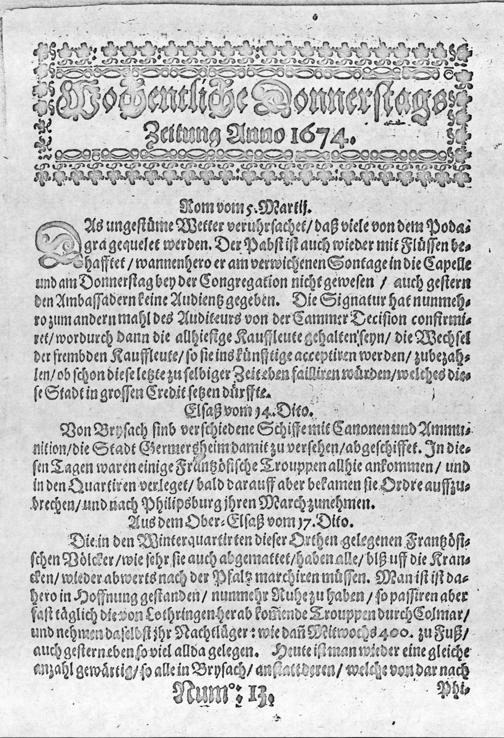 Wochentliche Donnerstags
Zeitung Anno 1674.
Rom vom 5. Martij.
DAs ungestüme Wetter veruhrsachet/ daß viele von dem Poda-
gra gequelet werden. Der Pabst ist auch wieder mit Flüssen be-
hafftet/ wannenhero er am verwichenen Sontage in die Capelle
und am Donnerstag bey der Congregation nicht gewesen / auch gestern
den Ambassadern keine Audientz gegeben. Die Signatur hat nunmeh-
ro zum andern mahl des Auditeurs von der Cammer Decision confirmi-
ret/ wordurch dann die allhiesige Kauffleute gehalten seyn/ die Wechsel
der frembden Kauffleute/ so sie ins künftige acceptiren werden/ zubezah-
len/ ob schon diese letzte zu selbiger Zeit eben failliren würden/ welches die-
se Stadt in grossen Credit setzen dürffte.
Elsaß vom 14. Dito.
Von Brysach sind verschiedene Schiffe mit Canonen und Ammu-
nition/ die Stadt Germersheim damit zu versehen/ abgeschiffet. In die-
sen Tagen waren einige Frantzösische Trouppen allhie ankommen/ und
in den Quartiren verleget/ bald darauff aber bekamen sie Ordre auffzu-
brechen/ und nach Philipsburg jhren March zunehmen.
Aus dem Ober-Elsaß vom 17. Dito.
Die in den Winterquartirten dieser Orthen gelegenen Frantzösi-
schen Völcker/ wie sehr sie auch abgemattet/ haben alle/ biß uff die Kran-
cken/ wieder abwerts nach der Pfaltz marchiren müssen. Man ist ist da-
hero in Hoffnung gestanden/ nunmehr Ruhe zu haben/ so passiren aber
fast täglich die von Lothringen herab kom̃ende Trouppen durch Colmar/
und nehmen daselbst jhr Nachtläger: wie dañ Mitwochs 400. zu Fuß/
auch gestern eben so viel allda gelegen. Heute ist man wieder eine gleiche
anzahl gewärtig/ so alle in Brysach/ anstatt deren/ welche von dar nach
Num°: 13.
Phi-